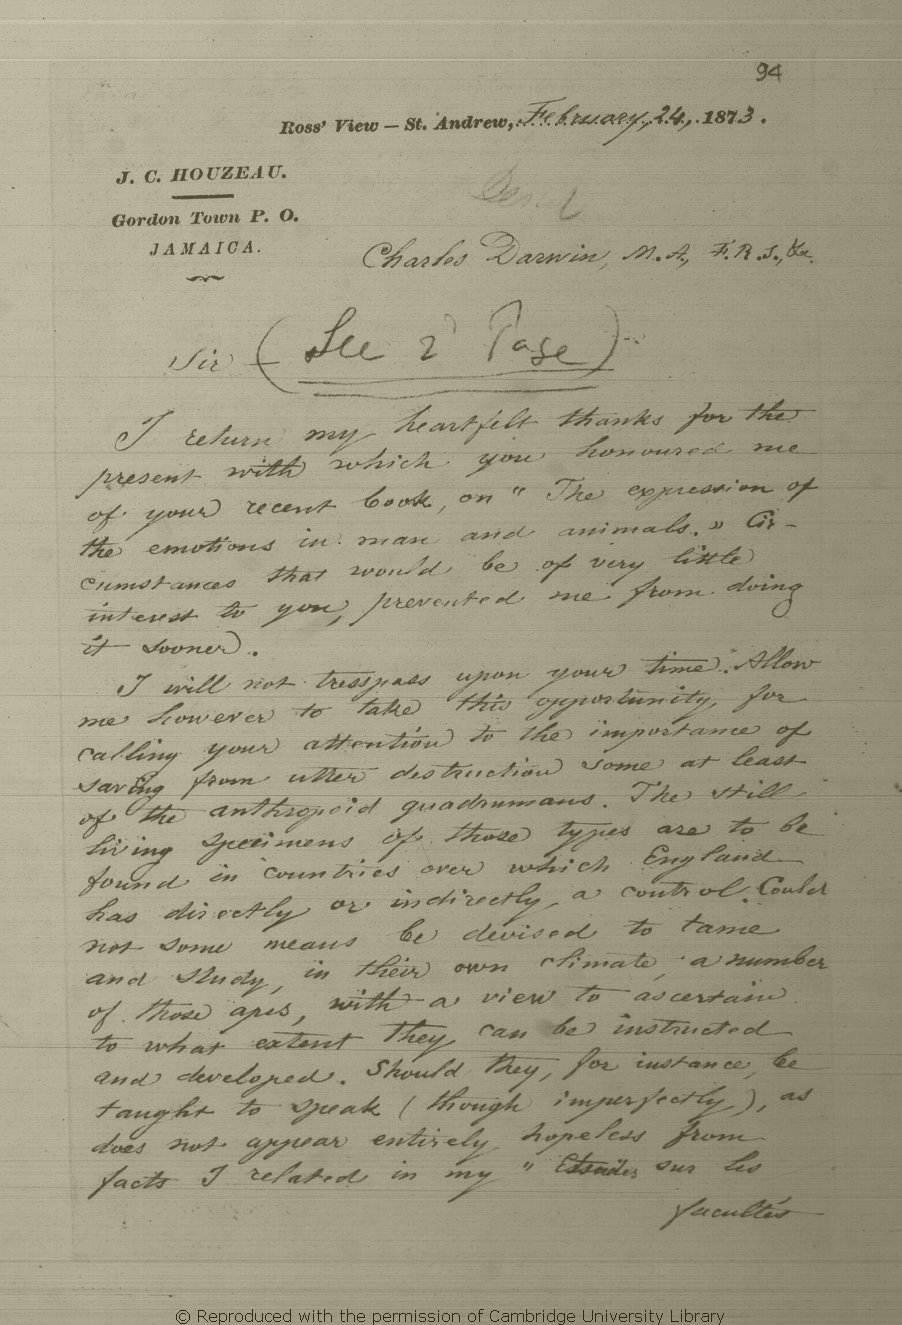 94
Ross' View — St. Andrew, February, 24, 1873.
J. C. HOUZEAU.
Gordon Town P. O.
JAMAICA.
Charles Darwin, M. A., F. R. S., &c.
Sir — (See 2d Page)
I return my heartfelt thanks for the
present with which you honoured me
of your recent book, on " The expression of
the emotions in man and animals. " Cir-
cumstances that would be of very little
interest to you, prevented me from doing
it sooner.
I will not tresspass upon your time. Allow
me however to take this opportunity, for
calling your attention to the importance of
saving from utter destruction some at least
of the anthropoid quadrumans. The still
living specimens of those types are to be
found in countries over which England
has directly or indirectly a control. Could
not some means be devised to tame
and study, in their own climate, a number
of those apes, with a view to ascertain
to what extent they can be instructed
and developed. Should they, for instance, be
taught to speak (though imperfectly), as
does not appear entirely hopeless from
facts I related in my " Etudes sur les
facultés
© Reproduced with the permission of Cambridge University Library